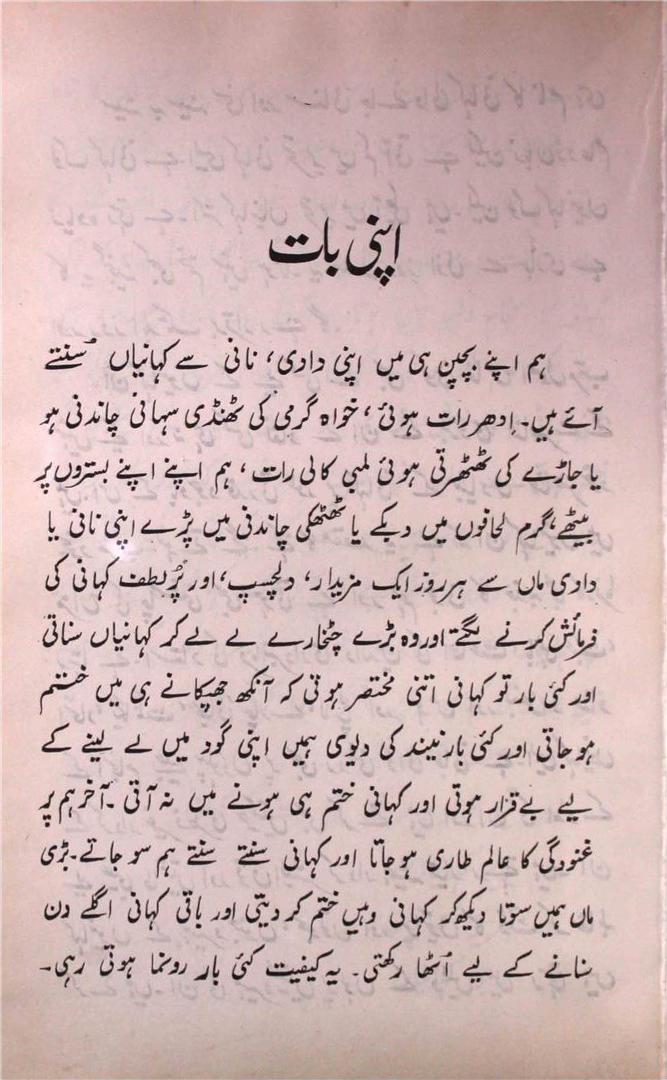 اپنی بات
ہم اپنے بچپن ہی میں اپنی دادی، نانی سے کہانیاں سُنتے
آئے ہیں۔ اِدھر رات ہوئی، خواہ گرمی کی ٹھنڈی سہانی چاندنی ہو
یا جاڑے کی ٹھٹھرتی ہوئی لمبی کالی رات، ہم اپنے اپنے بستروں پر
بیٹھے، گرم لحافوں میں دبکے یا ٹھٹھکی چاندنی میں پڑے اپنی نانی یا
دادی ماں سے ہر روز ایک مزیدار، دلچسپ، اور پُر لطف کہانی کی
فرمائش کرنے لگتے اور وہ بڑے چٹخارے لے لے کر کہانیاں سناتی
اور کئی بار تو کہانی اتنی مختصر ہوتی کہ آنکھ جھپکانے ہی میں ختم
ہو جاتی اور کئی بار نیند کی دیوی ہمیں اپنی گود میں لے لینے کے
لیے بے قرار ہوتی اور کہانی ختم ہی ہونے میں نہ آتی۔ آخر ہم پر
غنودگی کا عالم طاری ہو جاتا اور کہانی سنتے سنتے ہم سو جاتے۔ بڑی
ماں ہمیں سوتا دیکھ کر کہانی وہیں ختم کر دیتی اور باقی کہانی اگلے دن
سنانے کے لیے اُٹھا رکھتی۔ یہ کیفیت کئی بار رونما ہوتی رہی۔